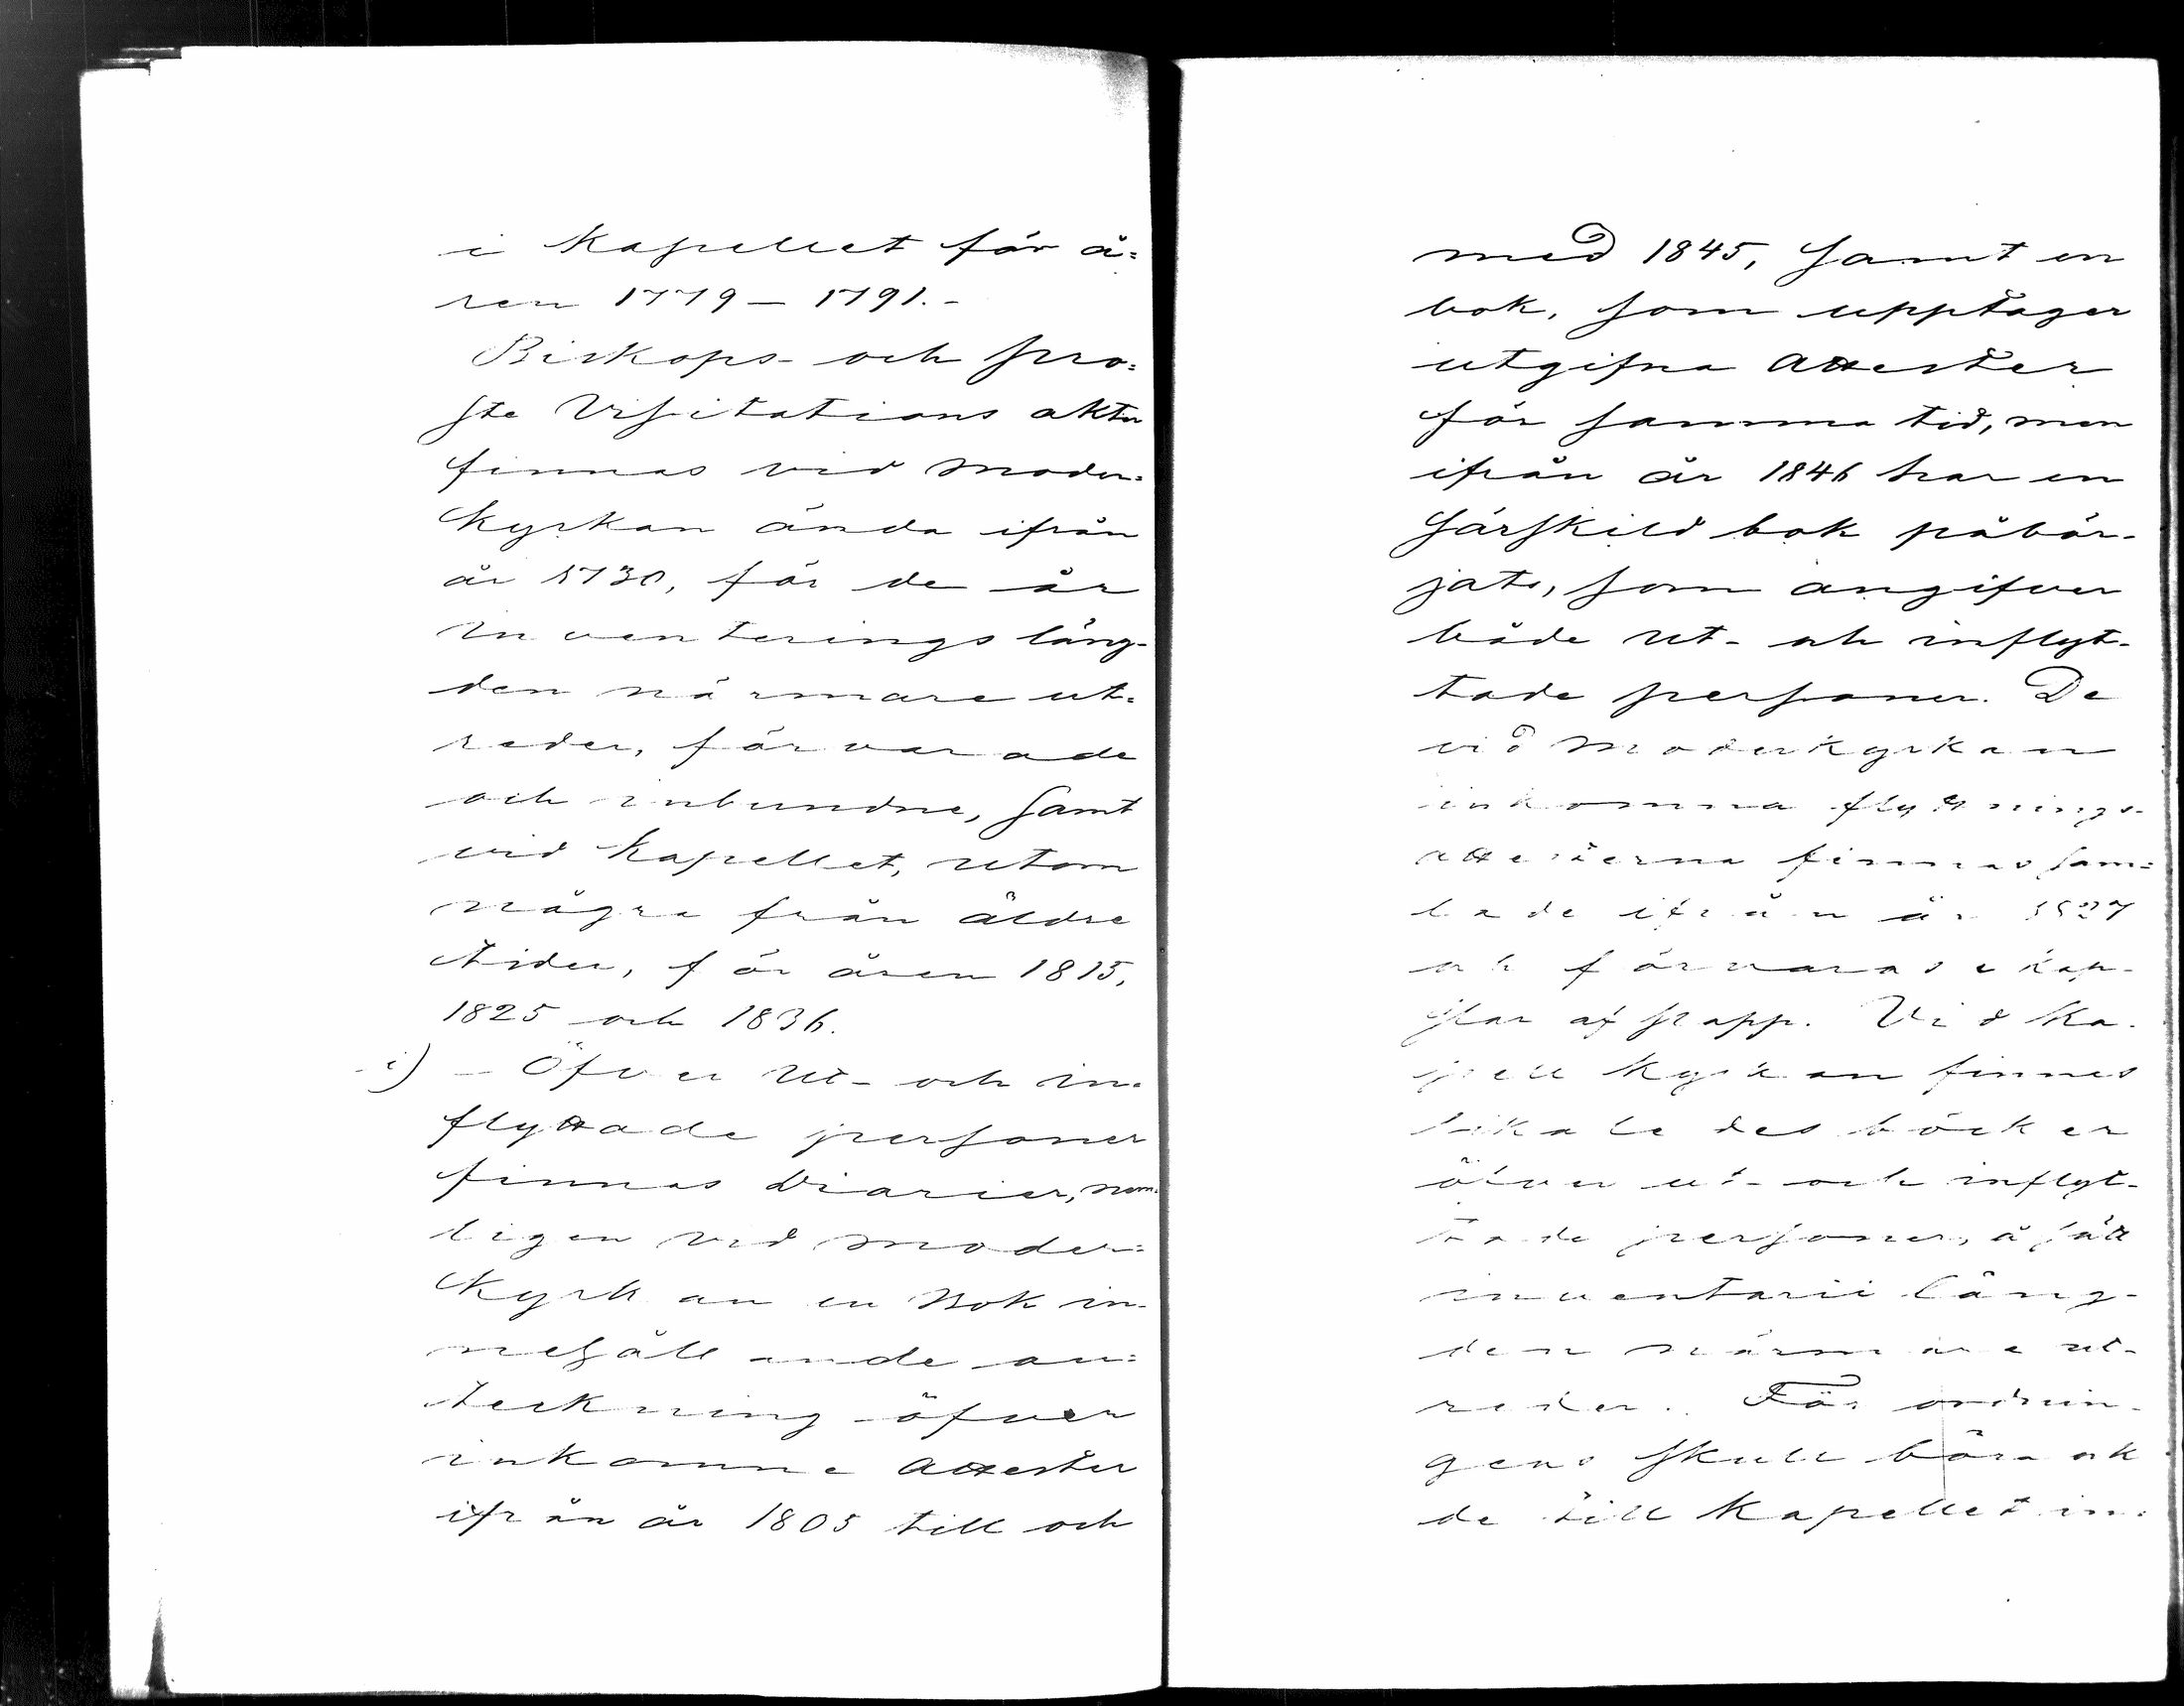 i Kapellet för å=
ren 1779 — 1791. -
Biskops- och pro=
ste Visitations akter
finnas vid moder=
kyrkan ända ifrån
år 1730, för de år
Inventerings läng-
den närmare ut=
reder, förvarade
och inbundne, samt
vid kapellet, utom
några från äldre
tider, för åren 1815,
1825 och 1836.
i) — Öfver ut- och in=
flyttade personer
finnas Diarier, nem=
ligen vid moder=
kyrkan en Bok in-
nehållande an=
teckning öfver
inkomne attester
ifrån år 1805 till och
med 1845, samt en
bok, som upptager
utgifna attester
för samma tid, men
ifrån år 1846 har en
särskild bok påbör-
jats, som angifver
både ut- och inflyt-
tade personer. De
vid moderkyrkan
inkomna flyttnings-
attesterna finnas sam=
lade ifrån år 1827
och förvaras i kap-
slar af papp. Vid Ka-
pell kyrkan finnes
likaledes böcker
öfver ut- och inflyt-
tade personer, å sätt
inventarii läng-
den närmare ut-
reder. För ordnin-
gens skull böra ock
de till Kapellet in=